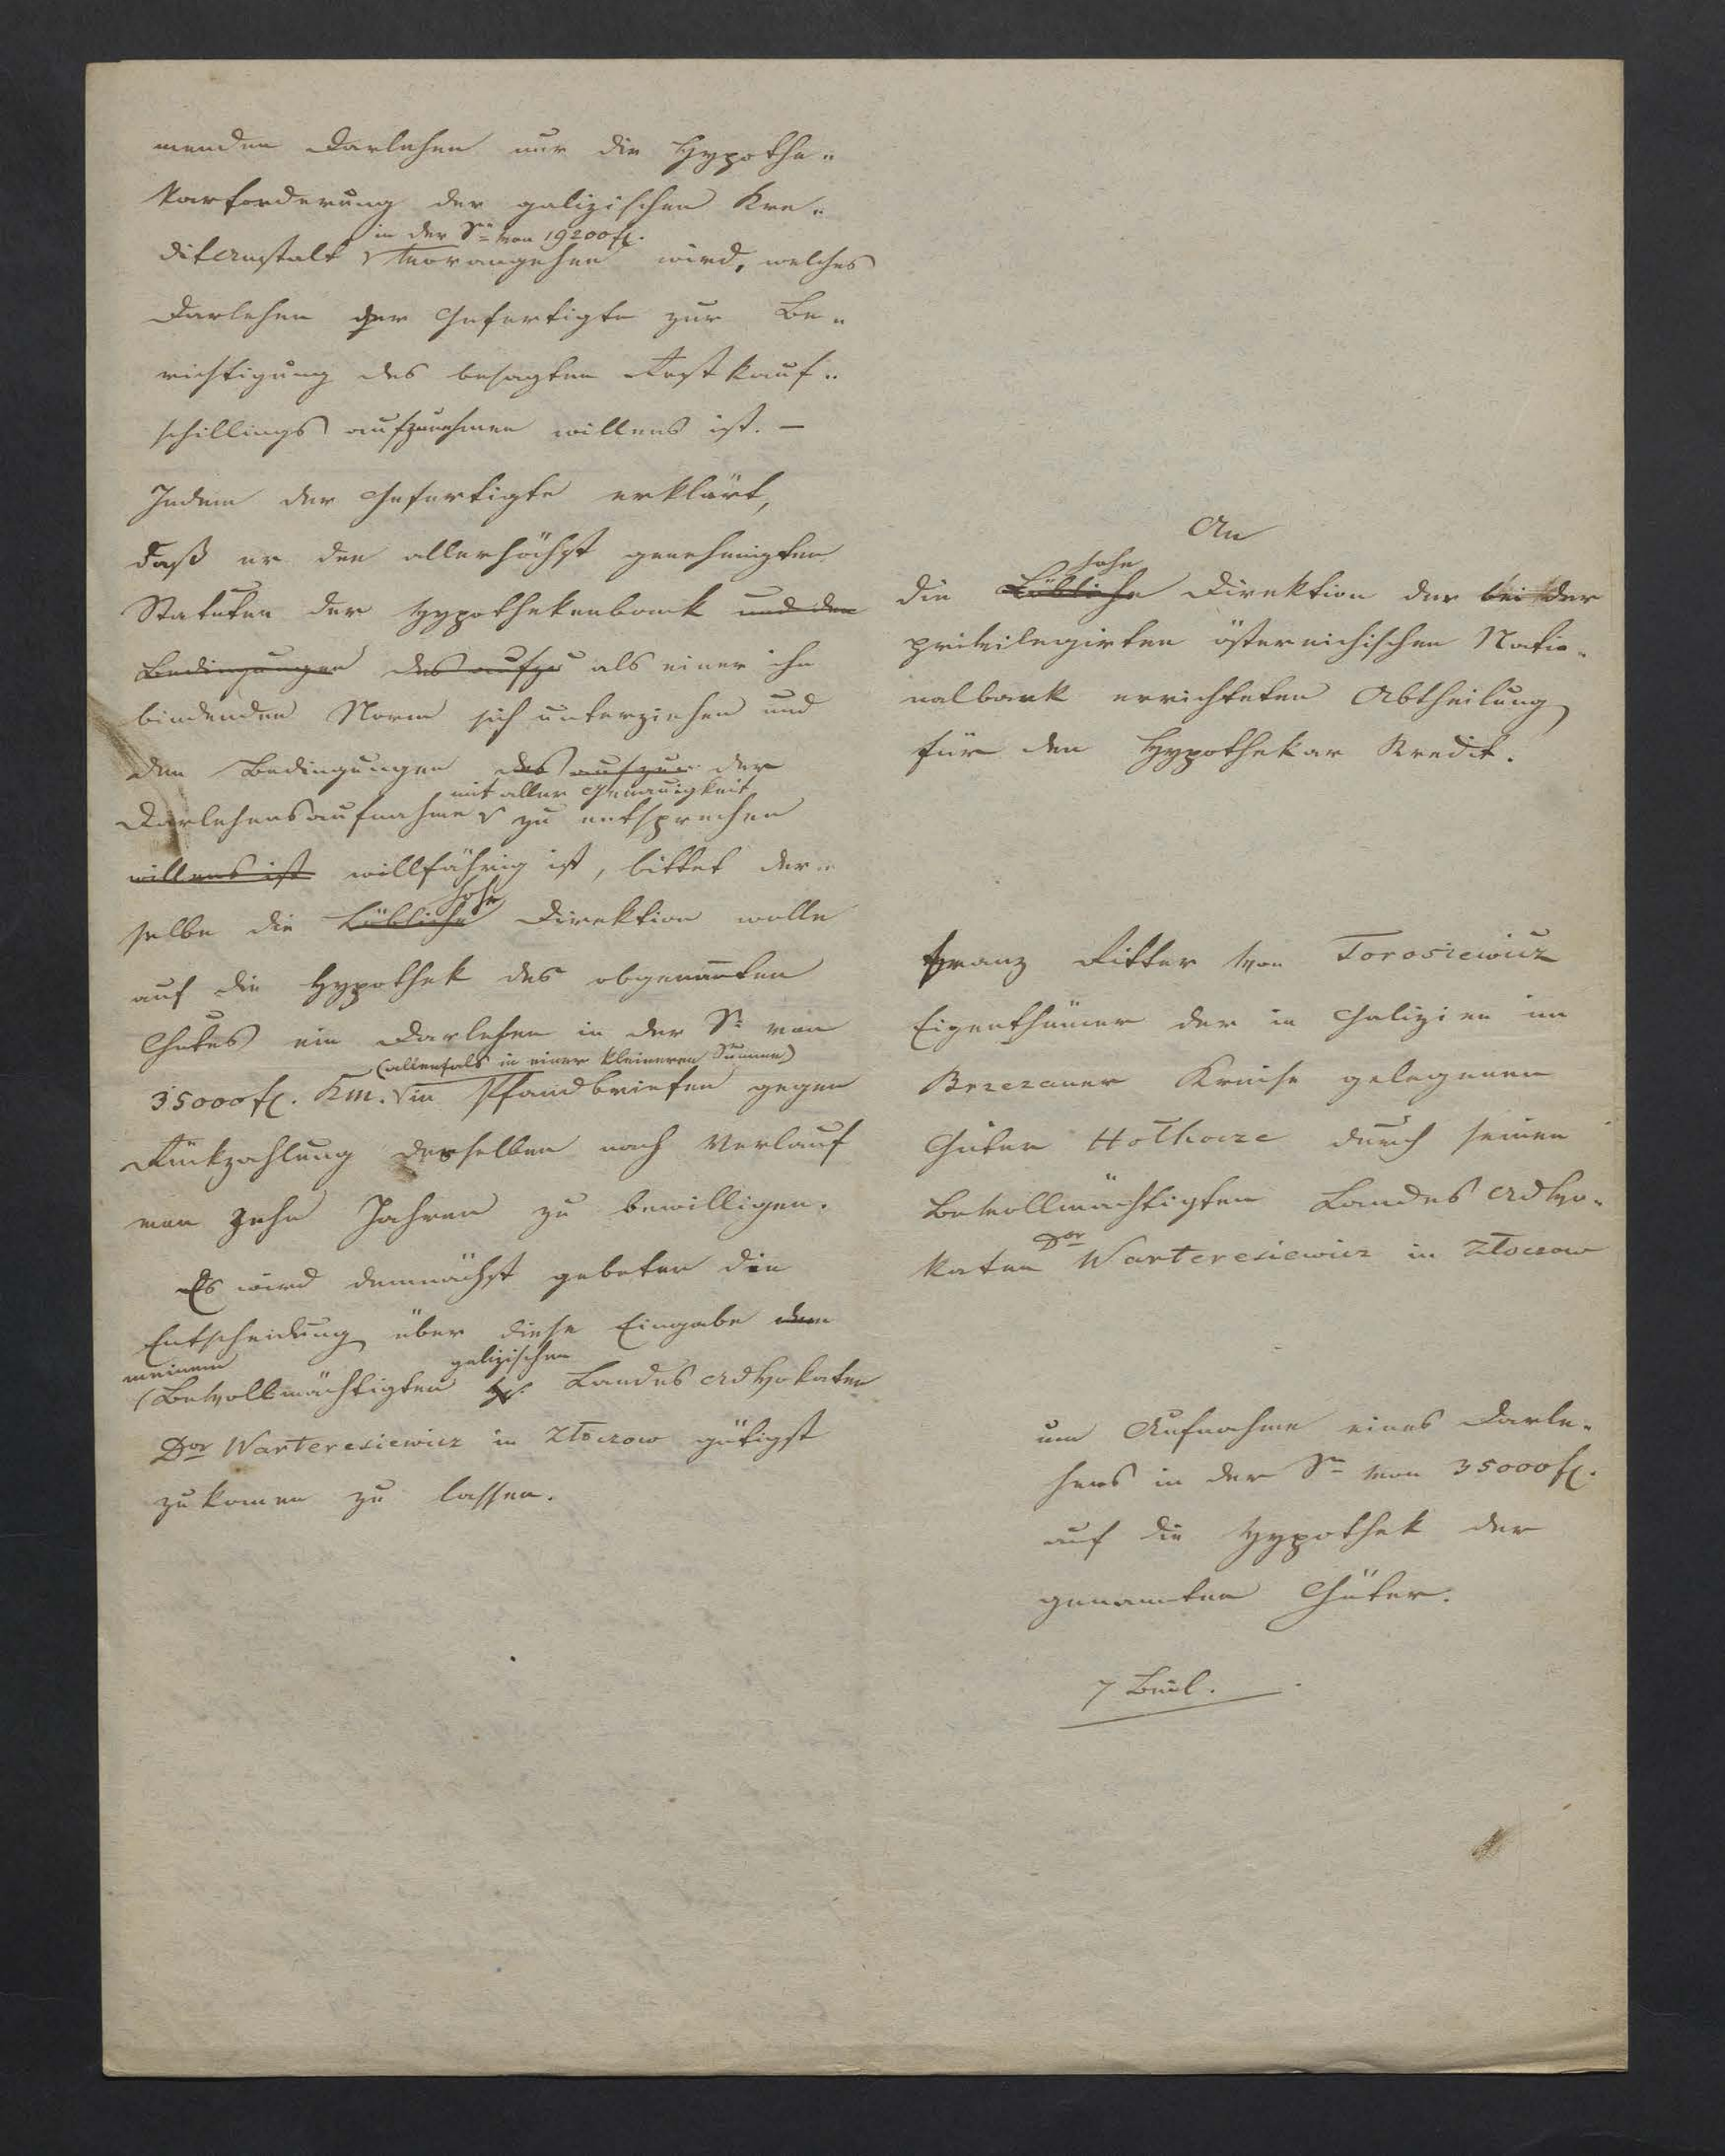 menden Darlehen nur die Hypothe„
karforderung der galizischen Kre„
in der Sᵉ von 19200 fl.
ditanstalt vorangehen wird, welches
Darlehen der Gefertigte zur Be„
richtigung des besagten Restkauf„
schillings aufzunehmen willens ist. –
Indem der Gefertigte erklärt,
daß er den allerhöchst genehmigten
Statuten der Hypothekenbank und den
Bedingungen des aufzu als einer ihn
bindenden Norm sich unterziehen und
den Bedingungen des aufzun der
mit aller Genauigkeit
Darlehensaufnahme zu entsprechen
willens ist willfährig ist, bittet der„
hohe
selbe die Löbliche Direktion wolle
auf die Hypothek des obgenannten
Gutes ein Darlehen in der Sᵉ von
(allenfals in einer kleineren Summe)
35000 fl. Km. in Pfandbriefen gegen
Rückzahlung desselben nach Verlauf
von zehn Jahren zu bewilligen.
Es wird demnächst gebeten die
Entscheidung über diese Eingabe dem
meinem galizischen
Bevollmächtigten H. Landes Advokaten
Dor Warteresiewicz in Złoczow gütigst
zukomen zu lassen.
An
hohe
die Löbliche Direktion der bei der
privilegirten östereichischen Natio„
nalbank errichteten Abtheilung
für den Hypothekar Kredit.
Franz Ritter von Torosiewicz
Eigenthümer der in Galizien im
Brzezaner Kreise gelegenen
Güter Hołhocze durch seinen
Bevollmächtigten Landes Advo„
Dor
katen Warteresiewicz in Złoczow
um Aufnahme eines Darle„
hens in der Sᵉ von 35000 fl.
auf die Hypothek der
genannten Güter.
7 Beil.